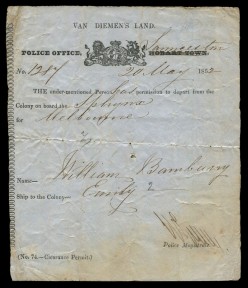 VAN DIEMEN'S LAND.
Launceston
POLICE OFFICE, HOBART TOWN.
No. 1287 20 May 1852
THE under-mentioned Person has permission to depart from the
Colony on board the
for Melbourne
Name— William Bambury
Ship to the Colony— Emily 2
Police Magistrate.
(No. 74.—Clearance Permit.)